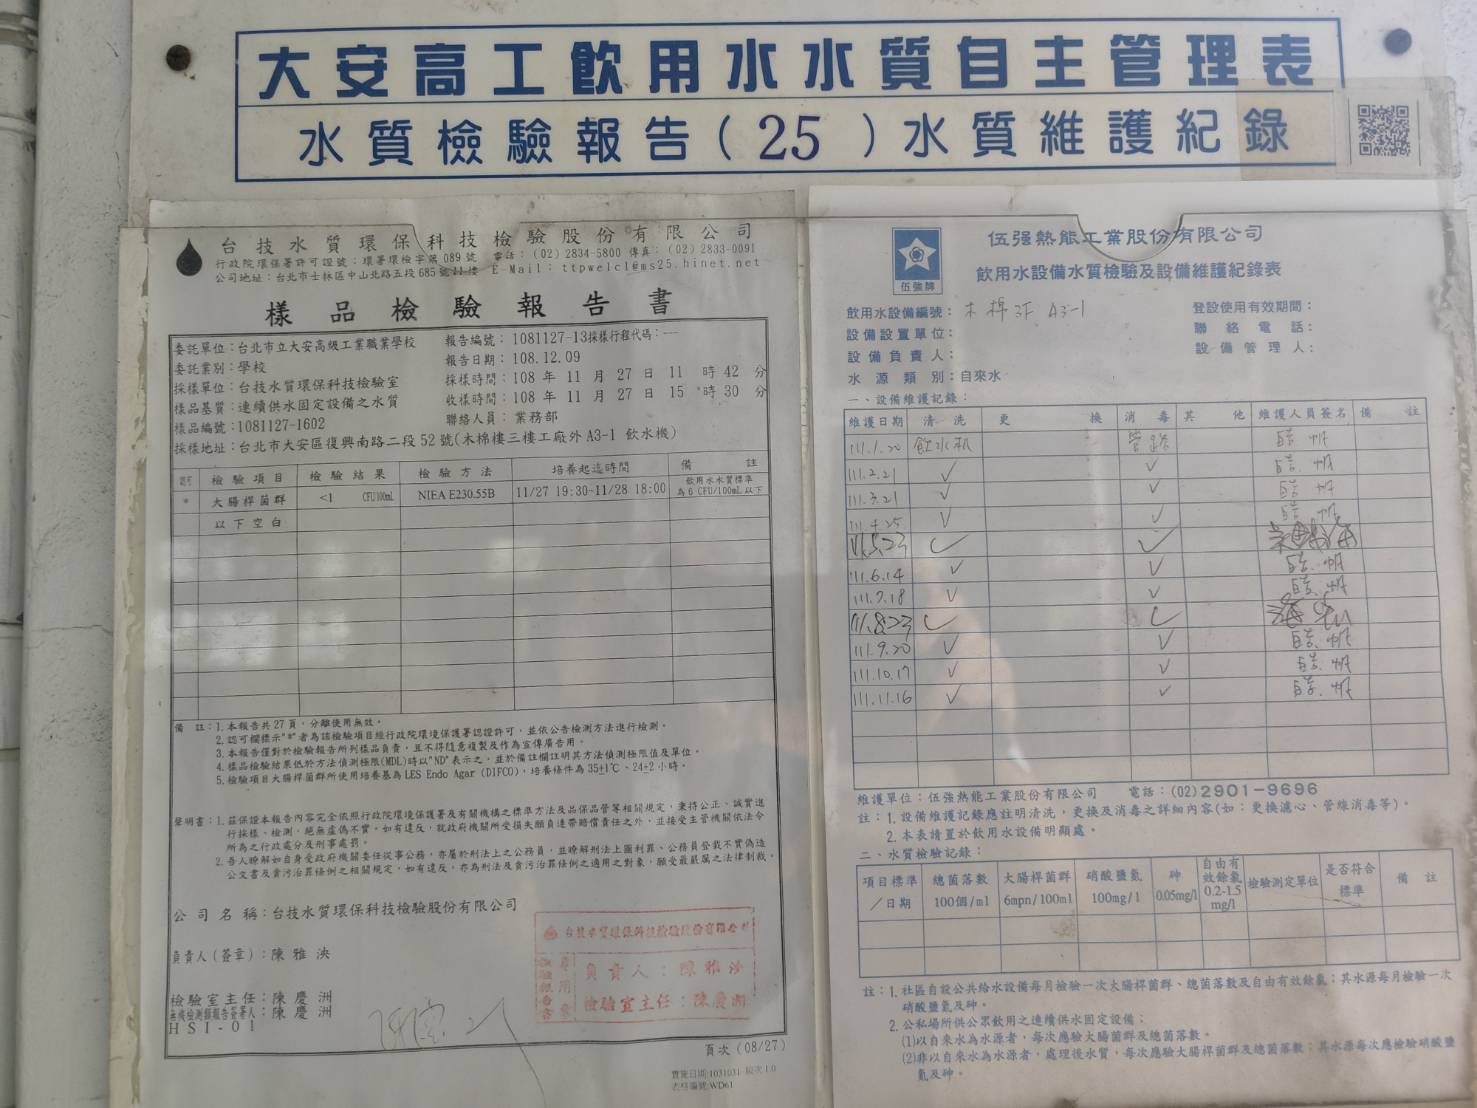 大安高工飲用水水質自主管理表
水質檢驗報告(25)水質維護紀錄
台技水質環保科技檢驗股份有限公司
行政院環保署許可證號：環署環檢字第089號 電話：(02)2834-5800 傳真：(02)2833-0091
公司地址：台北市士林區中山北路五段685號11樓 E-Mail：ttpwelcl@ms25.hinet.net
樣品檢驗報告書
委託單位：台北市立大安高級工業職業學校 報告編號：1081127-13採樣行程代碼：---
委託業別：學校 報告日期：108.12.09
採樣單位：台技水質環保科技檢驗室 採樣時間：108 年 11 月 27 日 11 時 42 分
樣品基質：連續供水固定設備之水質 收樣時間：108 年 11 月 27 日 15 時 30 分
樣品編號：1081127-1602 聯絡人員：業務部
採樣地址：台北市大安區復興南路二段52號(木棉樓三樓工廠外A3-1 飲水機)
檢驗項目 檢驗結果 檢驗方法 培養起迄時間 備註
* 大腸桿菌群 <1 CFU/100mL NIEA E230.55B 11/27 19:30-11/28 18:00 飲用水水質標準為6 CFU/100mL以下
以下空白
備註：1.本報告共27頁，分離使用無效。
2.認可欄標示"*"者為該檢驗項目經行政院環境保護署認證許可，並依公告檢測方法進行檢測。
3.本報告僅對於檢驗報告所列樣品負責，且不得隨意複製及作為宣傳廣告用。
4.樣品檢驗結果低於方法偵測極限(MDL)時以"ND"表示之，並於備註欄註明其方法偵測極限值及單位。
5.檢驗項目大腸桿菌群所使用培養基為LES Endo Agar (DIFCO)，培養條件為35±1℃、24±2小時。
聲明書：1.茲保證本報告內容完全依照行政院環境保護署及有關機構之標準方法及品保品管等相關規定，秉持公正、誠實進
行採樣、檢測，絕無虛偽不實。如有違反，就政府機關所受損失願負連帶賠償責任之外，並接受主管機關依法令
所為之行政處分及刑事處罰。
2.吾人瞭解如自身受政府機關委任從事公務，亦屬於刑法上之公務員，並瞭解刑法上圖利罪、公務員登載不實偽造
公文書及貪污治罪條例之相關規定，如有違反，亦為刑法及貪污治罪條例之適用之對象，願受最嚴厲之法律制裁。
公司名稱：台技水質環保科技檢驗股份有限公司
負責人(簽章)：陳雅泱
檢驗室主任：陳慶洲
無機檢測類報告簽署人：陳慶洲
HSI-01
台技水質環保科技檢驗股份有限公司
負責人：陳雅泱
檢驗室主任：陳慶洲
頁次(08/27)
實施日期:1031031 版次:1.0
表格編號:WD61
伍強牌
伍强熱能工業股份有限公司
飲用水設備水質檢驗及設備維護紀錄表
飲用水設備編號：木棉3F A3-1 登設使用有效期間：
設備設置單位： 聯絡電話：
設備負責人： 設備管理人：
水源類別：自來水
一、設備維護記錄：
維護日期 清洗 更換 消毒 其他 維護人員簽名 備註
111.1.20 飲水机 管路
111.2.21 ✓ ✓
111.3.21 ✓ ✓
111.4.25 ✓ ✓
111.5.23 ✓ ✓
111.6.14 ✓ ✓
111.7.18 ✓ ✓
111.8.23 ✓ ✓
111.9.20 ✓ ✓
111.10.17 ✓ ✓
111.11.16 ✓ ✓
維護單位：伍強熱能工業股份有限公司 電話：(02)2901-9696
註：1.設備維護記錄應註明清洗，更換及消毒之詳細內容(如：更換濾心、管線消毒等)。
2.本表請置於飲用水設備明顯處。
二、水質檢驗記錄：
項目標準／日期 總菌落數100個/ml 大腸桿菌群6mpn/100ml 硝酸鹽氮100mg/l 砷0.05mg/l 自由有效餘氯0.2-1.5mg/l 檢驗測定單位 是否符合標準 備註
註：1.社區自設公共給水設備每月檢驗一次大腸桿菌群、總菌落數及自由有效餘氯；其水源每月檢驗一次
硝酸鹽氮及砷。
2.公私場所供公眾飲用之連續供水固定設備：
(1)以自來水為水源者，每次應驗大腸菌群及總菌落數。
(2)非以自來水為水源者，處理後水質，每次應驗大腸桿菌群及總菌落數；其水源每次應檢驗硝酸鹽
氮及砷。